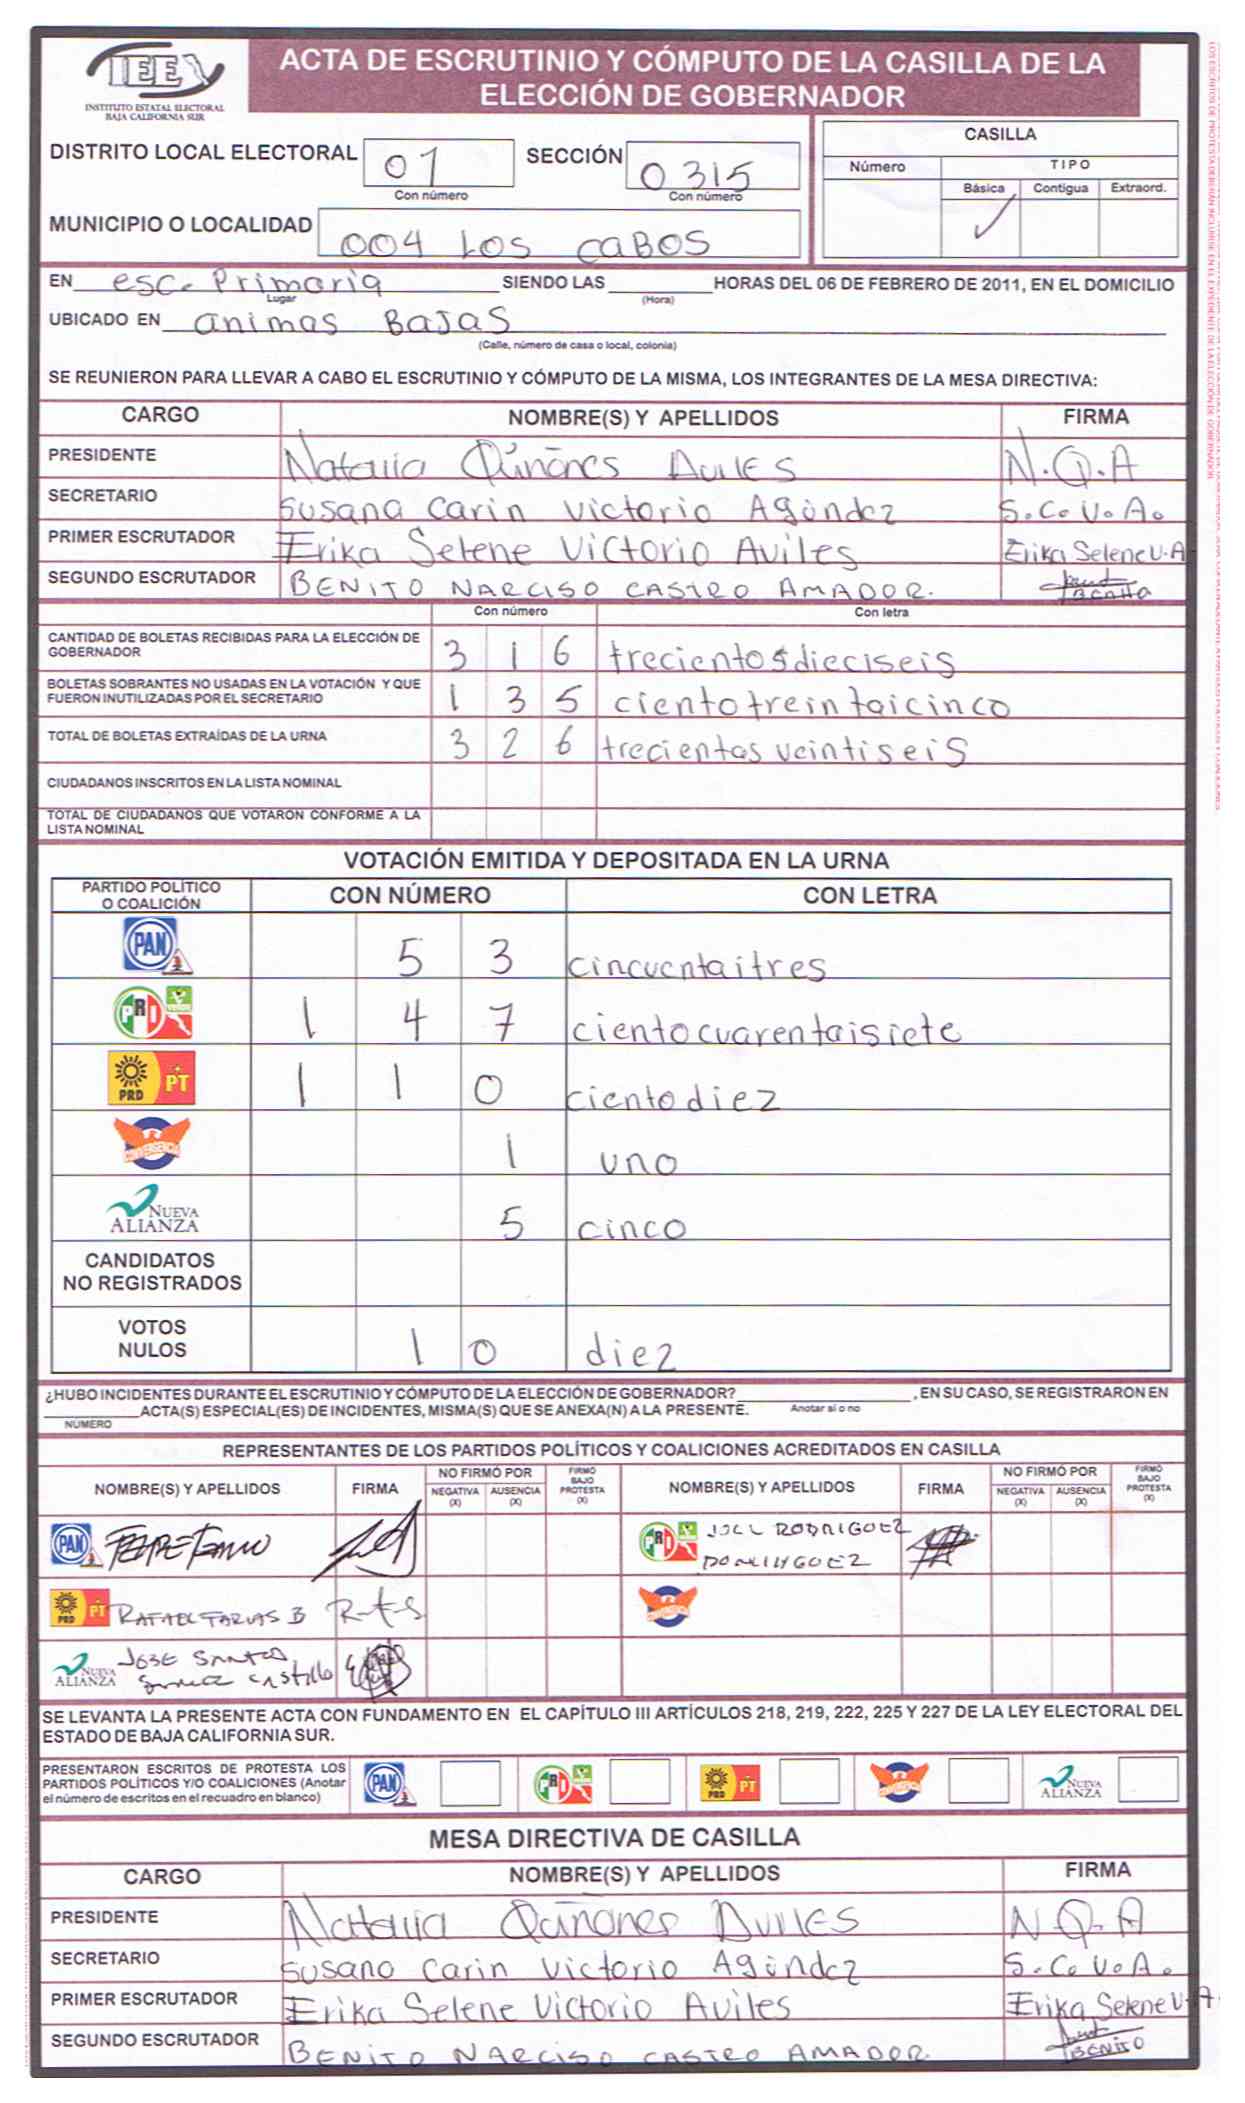 IEE
INSTITUTO ESTATAL ELECTORAL
BAJA CALIFORNIA SUR
ACTA DE ESCRUTINIO Y CÓMPUTO DE LA CASILLA DE LA
ELECCIÓN DE GOBERNADOR
DISTRITO LOCAL ELECTORAL 07 SECCIÓN 0315
Con número Con número
MUNICIPIO O LOCALIDAD 004 LOS CABOS
CASILLA
Número TIPO
Básica Contigua Extraord.
✓
EN esc. Primaria SIENDO LAS HORAS DEL 06 DE FEBRERO DE 2011, EN EL DOMICILIO
Lugar (Hora)
UBICADO EN animas BAJAS
(Calle, número de casa o local, colonia)
SE REUNIERON PARA LLEVAR A CABO EL ESCRUTINIO Y CÓMPUTO DE LA MISMA, LOS INTEGRANTES DE LA MESA DIRECTIVA:
CARGO NOMBRE(S) Y APELLIDOS FIRMA
PRESIDENTE Natalia Quiñones AVILES N.Q.A
SECRETARIO Susana Carin Victorio Agúndez S.C.V.A.
PRIMER ESCRUTADOR Erika Selene Victorio Aviles Erika Selene V.A
SEGUNDO ESCRUTADOR BENITO NARCISO CASTRO AMADOR.
Con número Con letra
CANTIDAD DE BOLETAS RECIBIDAS PARA LA ELECCIÓN DE
GOBERNADOR 3 1 6 trecientos dieciseis
BOLETAS SOBRANTES NO USADAS EN LA VOTACIÓN Y QUE
FUERON INUTILIZADAS POR EL SECRETARIO 1 3 5 ciento treintaicinco
TOTAL DE BOLETAS EXTRAÍDAS DE LA URNA 3 2 6 trecientos veintiseis
CIUDADANOS INSCRITOS EN LA LISTA NOMINAL
TOTAL DE CIUDADANOS QUE VOTARON CONFORME A LA
LISTA NOMINAL
VOTACIÓN EMITIDA Y DEPOSITADA EN LA URNA
PARTIDO POLÍTICO
O COALICIÓN CON NÚMERO CON LETRA
PAN 5 3 cincuentaitres
PRI VERDE 1 4 7 ciento cuarentaisiete
PRD PT 1 1 0 ciento diez
CONVERGENCIA 1 uno
NUEVA
ALIANZA 5 cinco
CANDIDATOS
NO REGISTRADOS
VOTOS
NULOS 1 0 diez
¿HUBO INCIDENTES DURANTE EL ESCRUTINIO Y CÓMPUTO DE LA ELECCIÓN DE GOBERNADOR? , EN SU CASO, SE REGISTRARON EN
ACTA(S) ESPECIAL(ES) DE INCIDENTES, MISMA(S) QUE SE ANEXA(N) A LA PRESENTE. Anotar sí o no
NÚMERO
REPRESENTANTES DE LOS PARTIDOS POLÍTICOS Y COALICIONES ACREDITADOS EN CASILLA
NOMBRE(S) Y APELLIDOS FIRMA NO FIRMÓ POR NEGATIVA (X) AUSENCIA (X) FIRMÓ BAJO PROTESTA (X) NOMBRE(S) Y APELLIDOS FIRMA NO FIRMÓ POR NEGATIVA (X) AUSENCIA (X) FIRMÓ BAJO PROTESTA (X)
PAN PRI VERDE JOEL RODRIGUEZ
DOMINGUEZ
PRD PT RAFAEL FARIAS B R-F-S CONVERGENCIA
NUEVA ALIANZA JOSE SANTOS
Castillo
SE LEVANTA LA PRESENTE ACTA CON FUNDAMENTO EN EL CAPÍTULO III ARTÍCULOS 218, 219, 222, 225 Y 227 DE LA LEY ELECTORAL DEL
ESTADO DE BAJA CALIFORNIA SUR.
PRESENTARON ESCRITOS DE PROTESTA LOS
PARTIDOS POLÍTICOS Y/O COALICIONES (Anotar
el número de escritos en el recuadro en blanco) PAN PRI VERDE PRD PT CONVERGENCIA NUEVA ALIANZA
MESA DIRECTIVA DE CASILLA
CARGO NOMBRE(S) Y APELLIDOS FIRMA
PRESIDENTE Natalia Quiñones AVILES N.Q.A
SECRETARIO Susana Carin Victorio Agúndez S.C.V.A.
PRIMER ESCRUTADOR Erika Selene Victorio Aviles Erika Selene V-A
SEGUNDO ESCRUTADOR BENITO NARCISO CASTRO AMADOR. BENITO